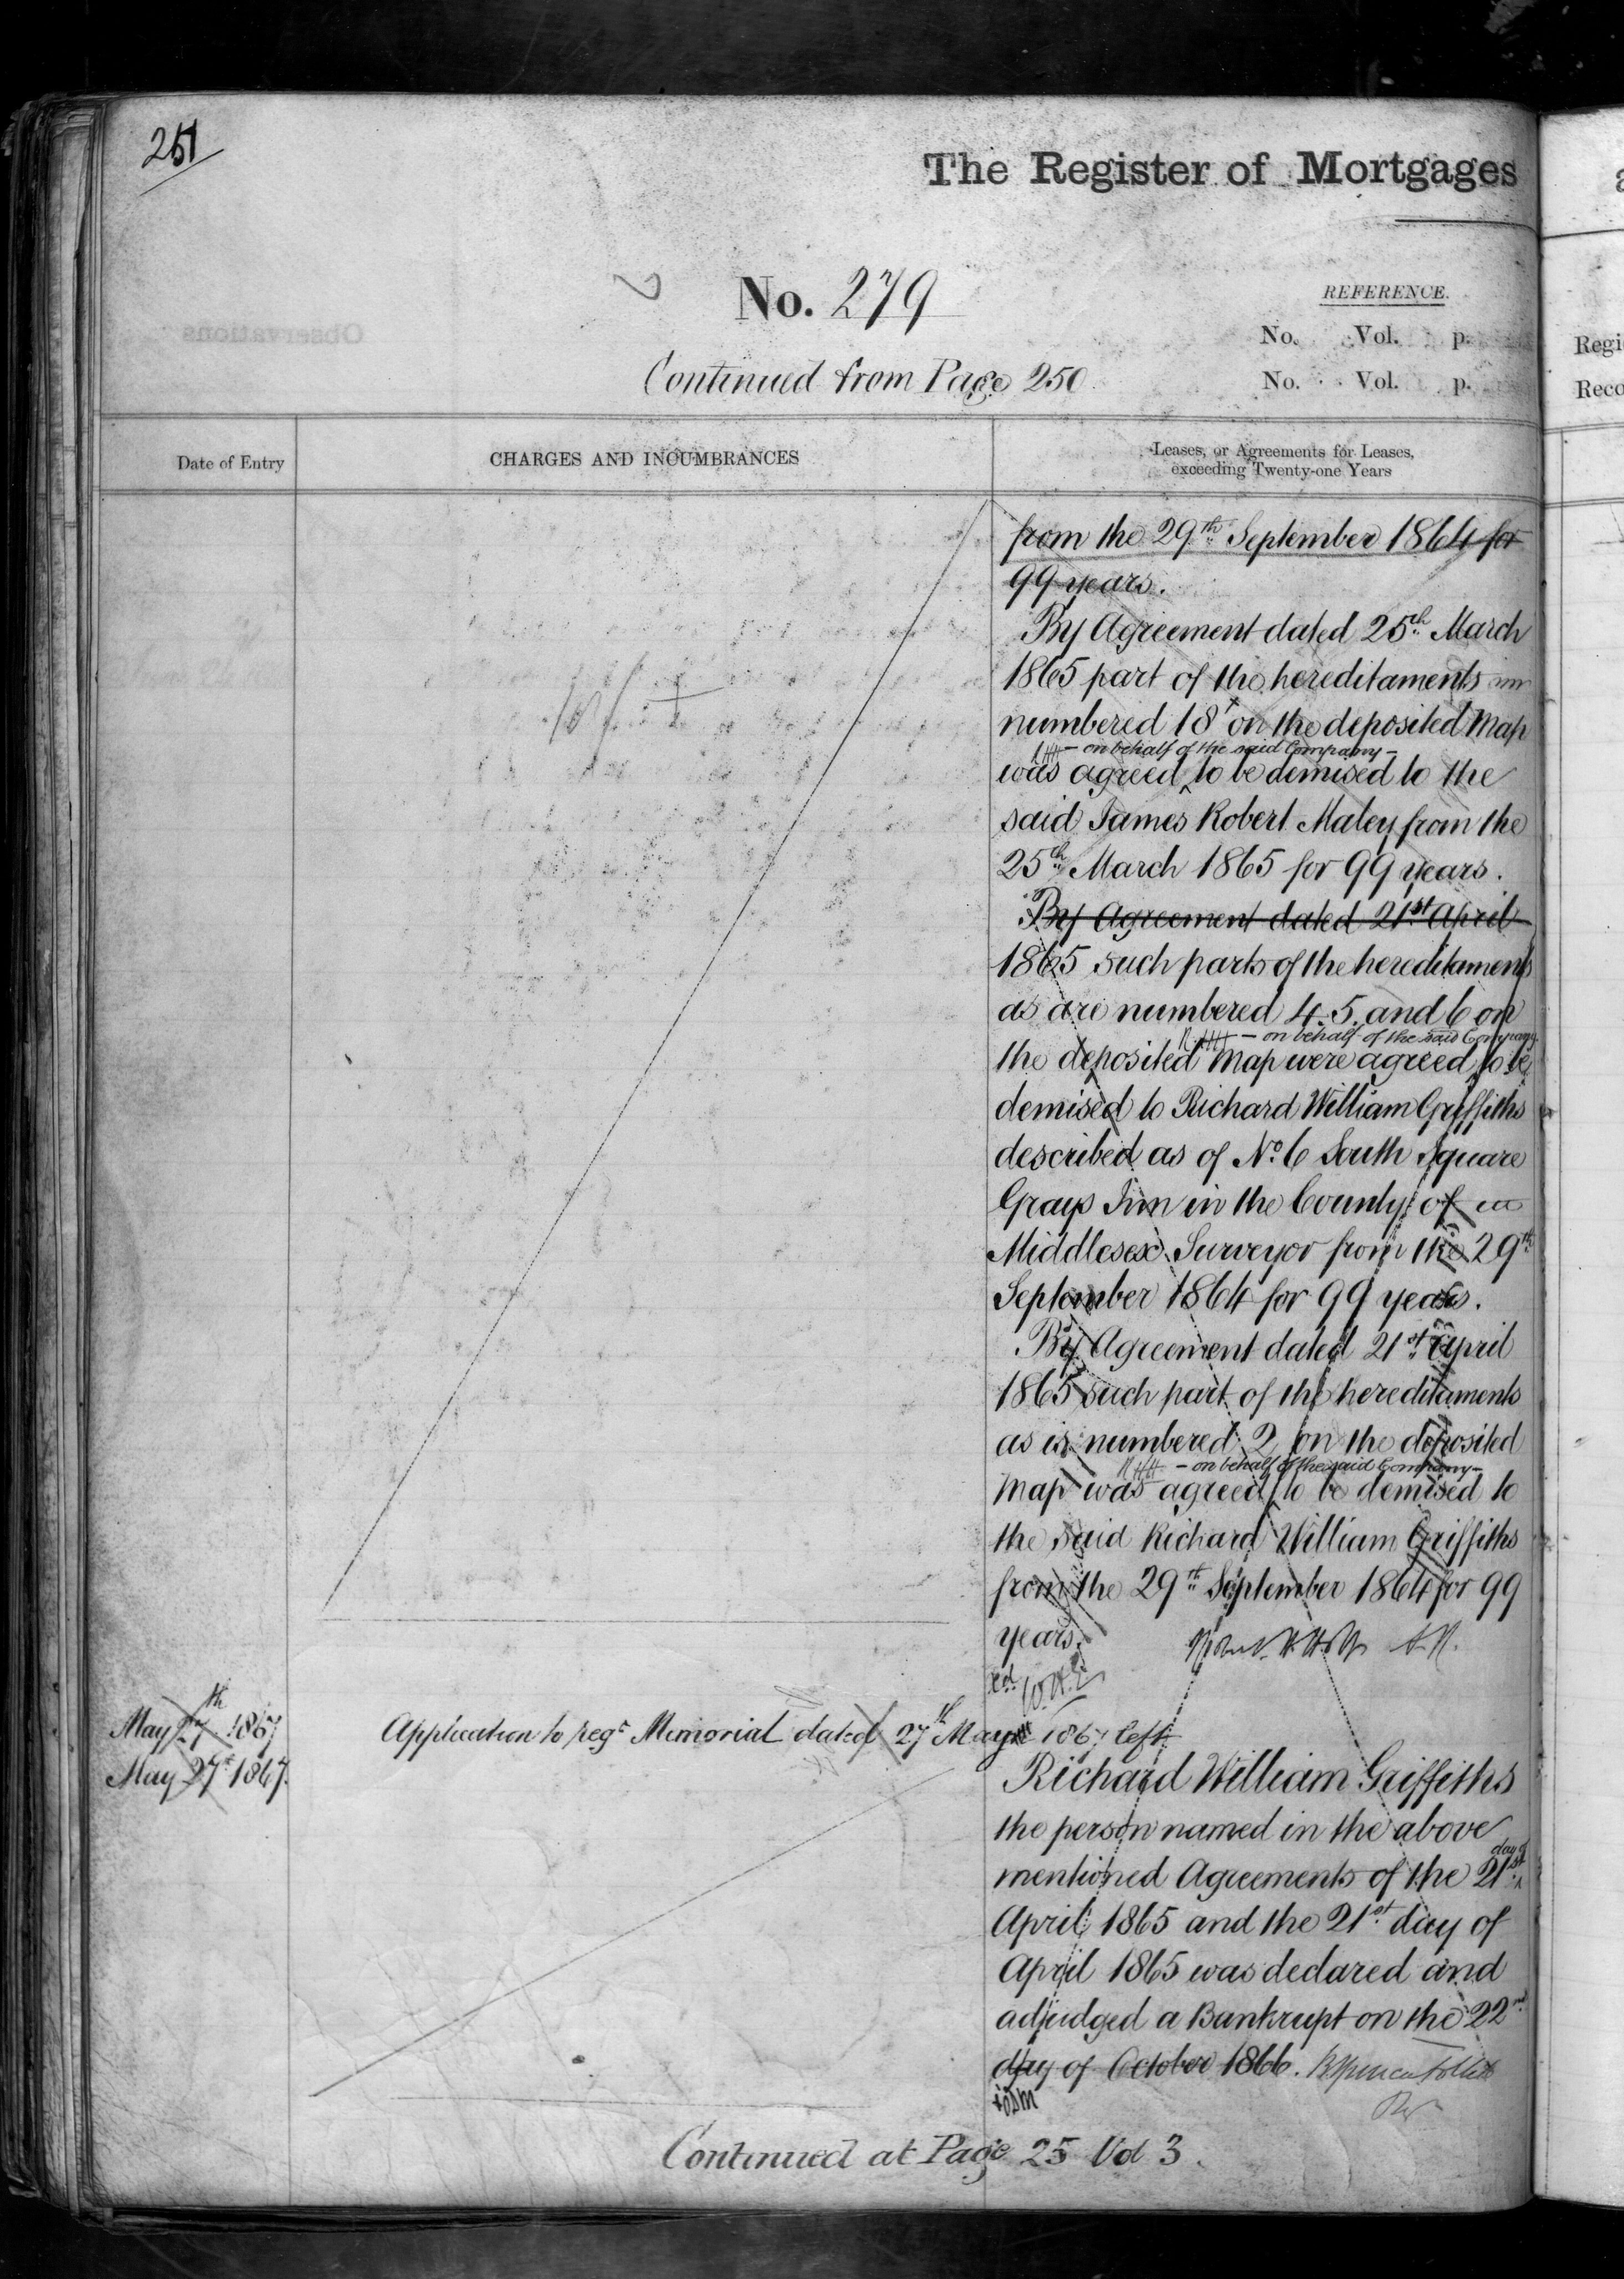 251
The Register of Mortgages
No. 279
REFERENCE.
No. Vol. p.
No. Vol. p.
Continued from Page 250
Date of Entry
CHARGES AND INCUMBRANCES
Leases, or Agreements for Leases,
exceeding Twenty-one Years
from the 29th September 1864 for
99 years.
By Agreement dated 25th March
1865 part of the hereditaments
numbered 18 on the deposited Map
- on behalf of the said Company -
was agreed to be demised to the
said James Robert Maley from the
25th March 1865 for 99 years.
By Agreement dated 21st April
1865 such parts of the hereditaments
as are numbered 4. 5. and 6 on
- on behalf of the said Company
the deposited Map were agreed to be
demised to Richard William Griffiths
described as of No. 6 South Square
Grays Inn in the County of
Middlesex Surveyor from the 29th
September 1864 for 99 years.
By Agreement dated 21st April
1865 such part of the hereditaments
as is numbered 2 on the deposited
- on behalf of the said Company -
Map was agreed to be demised to
the said Richard William Griffiths
from the 29th September 1864 for 99
years.
May 27th 1867
Application to regr Memorial dated 27th May 1867 left
May 27th 1867.
Richard William Griffiths
the person named in the above
mentioned Agreements of the 21st day of
April 1865 and the 21st day of
April 1865 was declared and
adjudged a Bankrupt on the 22nd
day of October 1866.
Continued at Page 25 Vol 3.
Regi
Reco